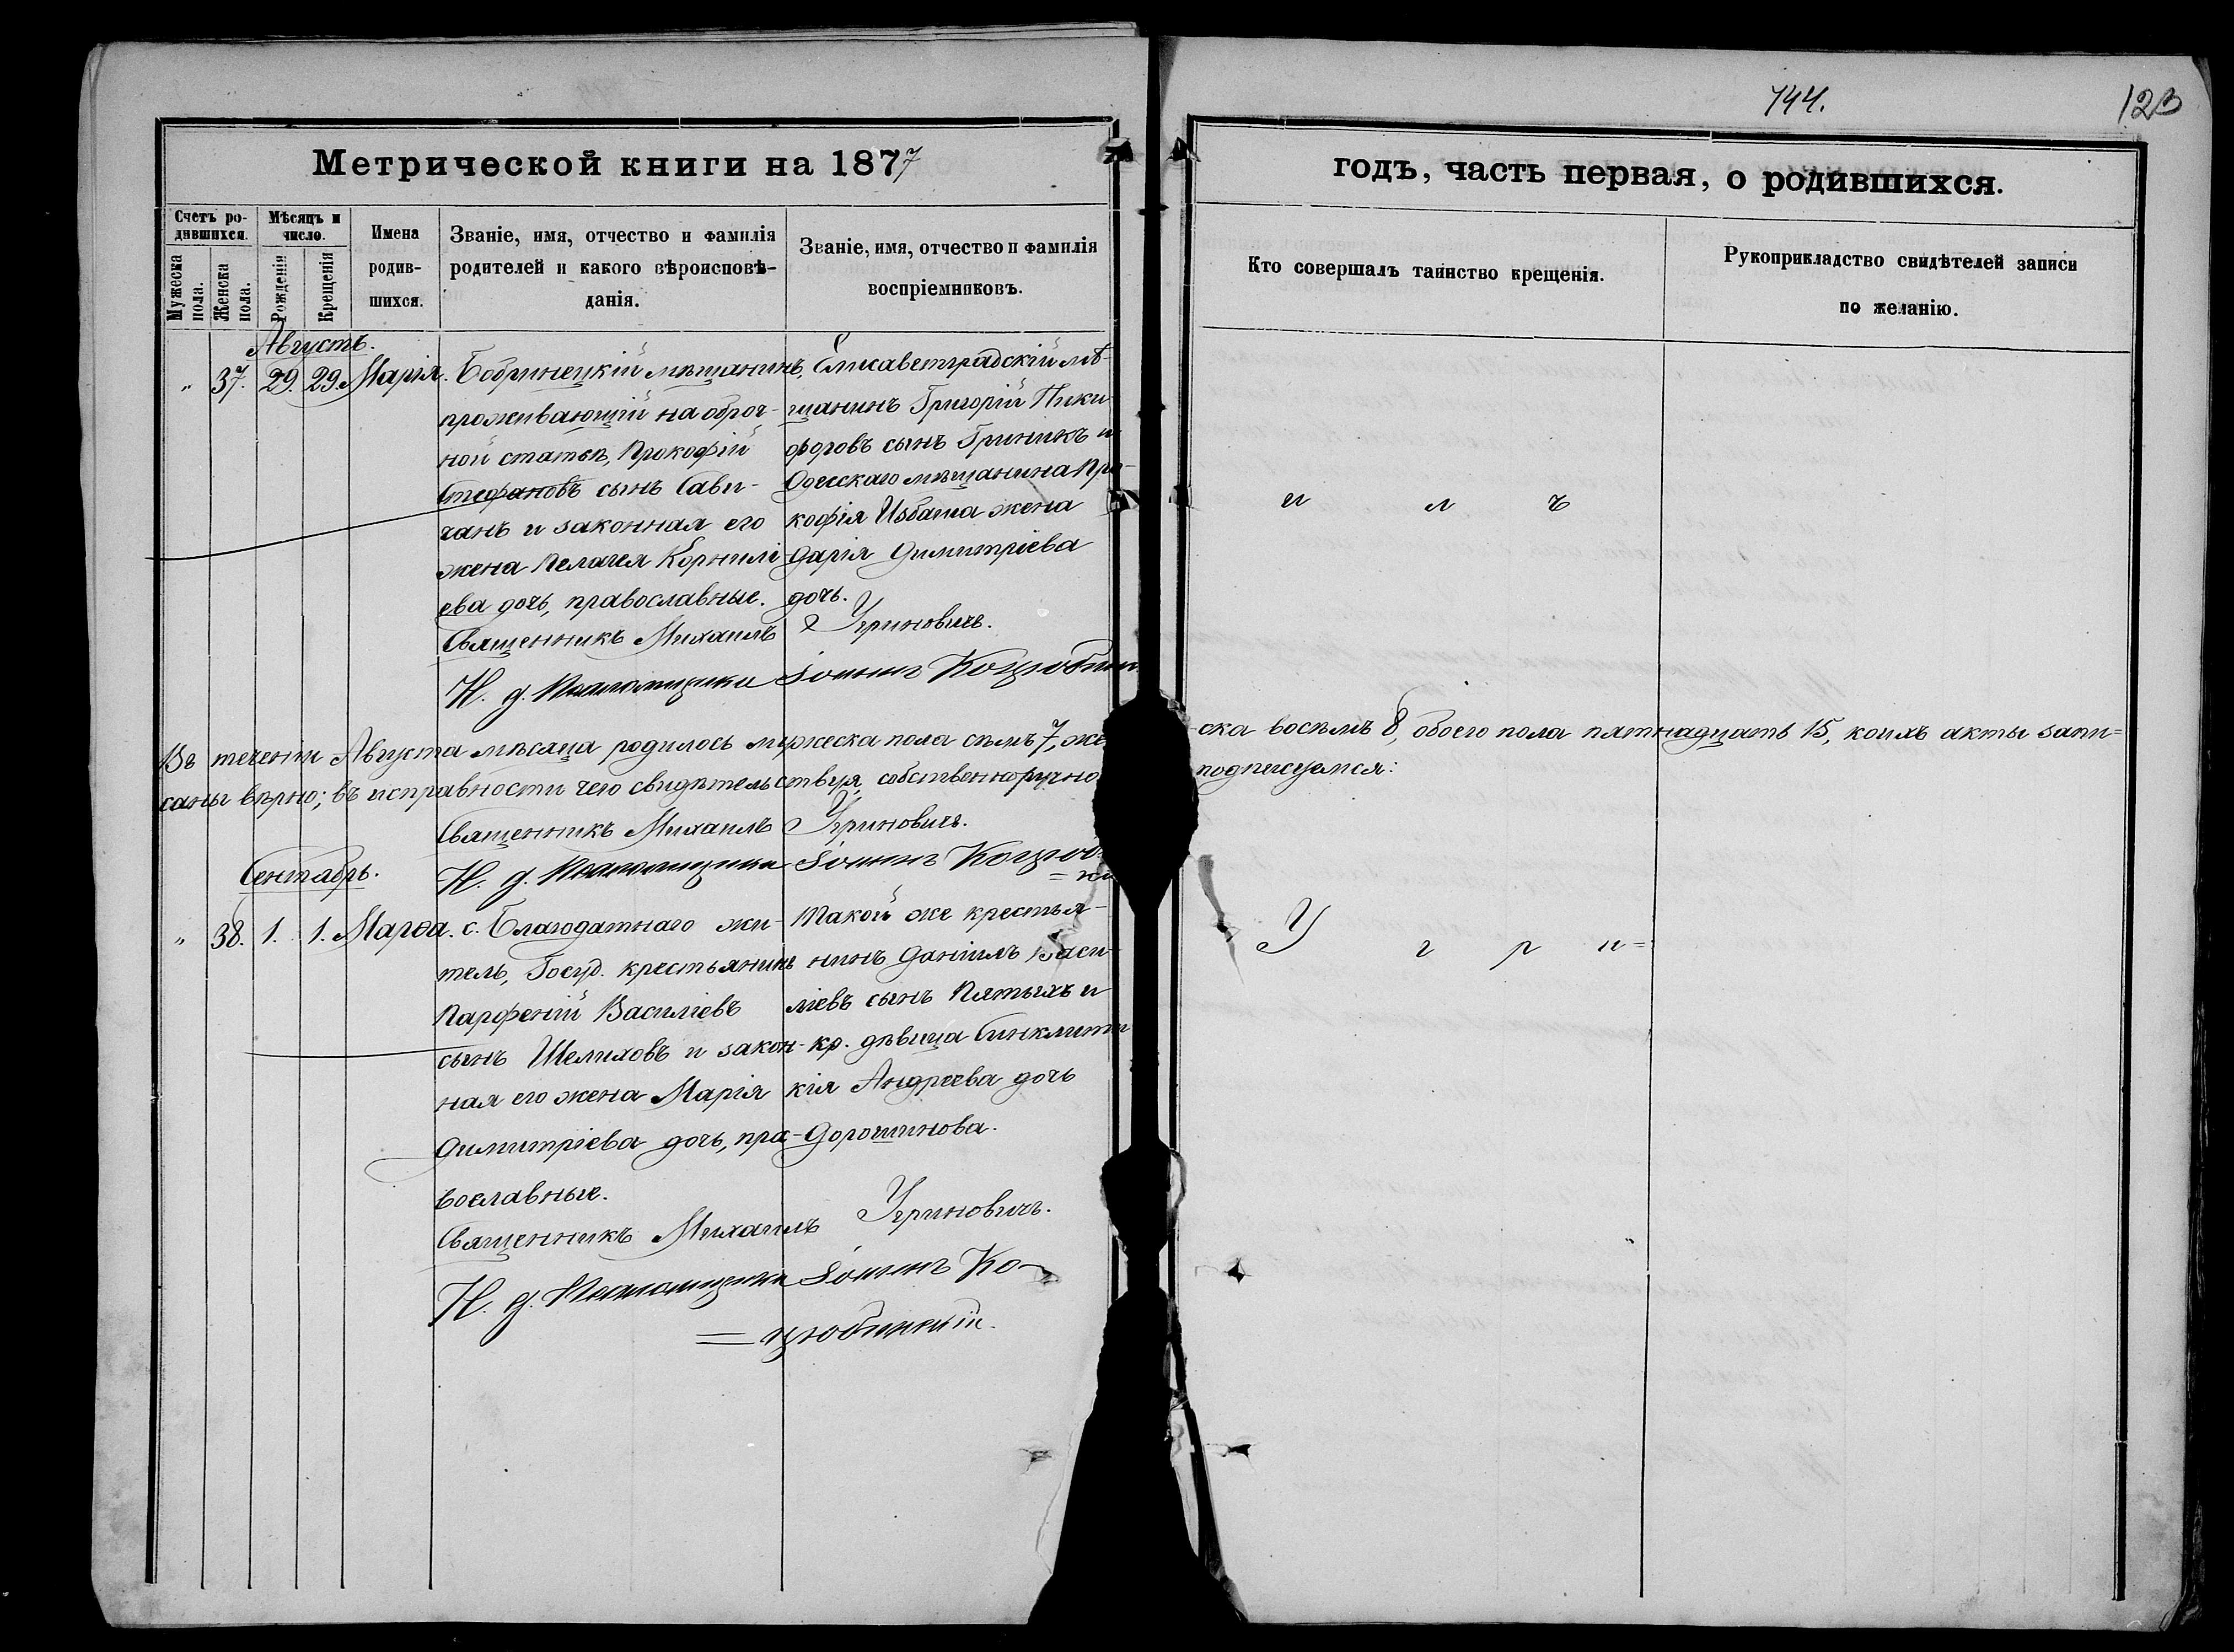 744.
123
Метрической книги на 1877
годъ, часть первая, о родившихся.
Счетъ ро-
дившихся.
Мужеска пола.
Женска пола.
Мѣсяцъ и
число.
Рожденія
Крещенія
Имена
родив-
шихся.
Званіе, имя, отчество и фамилія
родителей и какого вѣроисповѣ-
данія.
Званіе, имя, отчество и фамилія
воспріемниковъ.
Кто совершалъ таинство крещенія.
Рукоприкладство свидѣтелей записи
по желанію.
Августъ.
„ 37. 29. 29. Марія.
Бобринецкій мѣщанинъ,
проживающій на оброч-
ной статьѣ, Прокофій
Стефановъ сынъ Сави-
чанъ и законная его
жена Пелагея Корнилі-
ева дочь, православные.
Елисаветградскій мѣ-
щанинъ Григорій Ники
форовъ сынъ Гриникъ и
Одесскаго мѣщанина Про-
кофія Избаша жена
Дарія Димитріева
дочь.
и л ъ
Священникъ Михаилъ Угриновичъ.
Н. д. Псаломщика Іоаннъ Коцюбин
Въ теченіи Августа мѣсяца родилось мужеска пола семь 7, же
ска восемь 8, обоего пола пятнадцать 15, коихъ акты запи=
саны вѣрно; въ исправности чего свидѣтельствуя, собственноручно
подписуемся:
Священникъ Михаилъ Угриновичъ.
Н. д. Псаломщика Іоаннъ Коцюб
Сентябрь.
„ 38. 1. 1. Марѳа.
с. Благодатнаго жи-
тель, Госуд. крестьянинъ
Парфеній Василіевъ
сынъ Шелиховъ и закон-
ная его жена Марія
Димитріева дочь, пра-
вославные.
Такой же крестья-
нинъ Даніилъ Васи-
ліевъ сынъ Пятыхъ и
кр. дѣвица Синклити
кія Андреева дочь
Дорошинова.
У г р и=
Священникъ Михаилъ Угриновичъ.
Н. д. Псаломщика Іоаннъ Ко-
=цюбинскій.